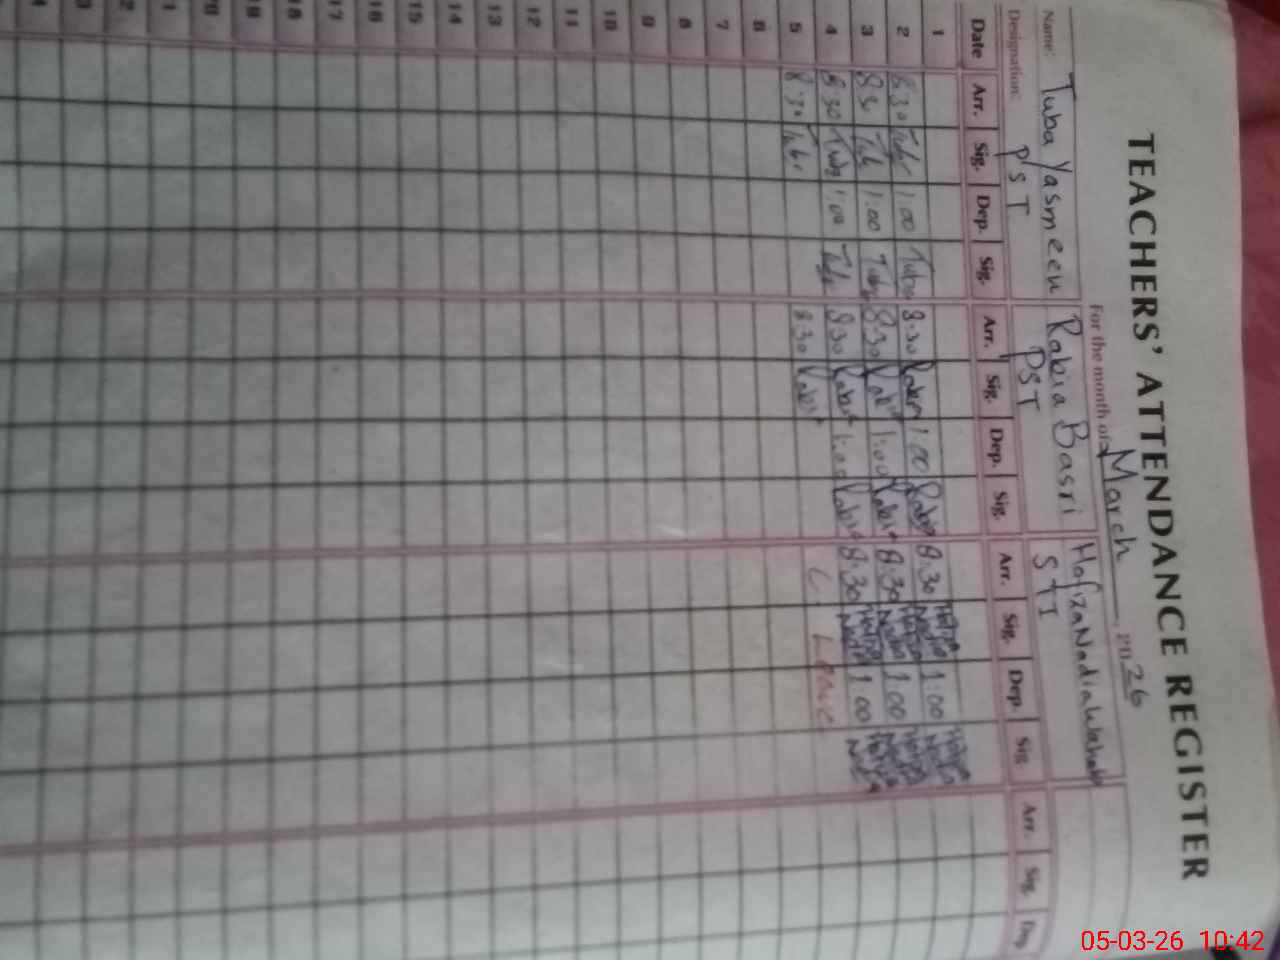 TEACHERS' ATTENDANCE REGISTER
For the month of March 2026
Name: Tuba Yasmeen Rabia Basri Hafiza Nadia Wahab
Designation: PST PST STI
Date Arr. Sig. Dep. Sig. Arr. Sig. Dep. Sig. Arr. Sig. Dep. Sig. Arr. Sig. Dep.
1
2 8:30 Tuba 1:00 Tuba 8:30 Rabia 1:00 Rabia 8:30 Hafiza Nadia 1:00 Hafiza Nadia
3 8:30 Tuba 1:00 Tuba 8:30 Rabia 1:00 Rabia 8:30 Hafiza Nadia 1:00 Hafiza Nadia
4 8:30 Tuba 1:00 Tuba 8:30 Rabia 1:00 Rabia 8:30 Hafiza Nadia 1:00 Hafiza Nadia
5 8:30 Tuba 8:30 Rabia C Leave
6
7
8
9
10
11
12
13
14
15
16
17
18
19
20
05-03-26 10:42